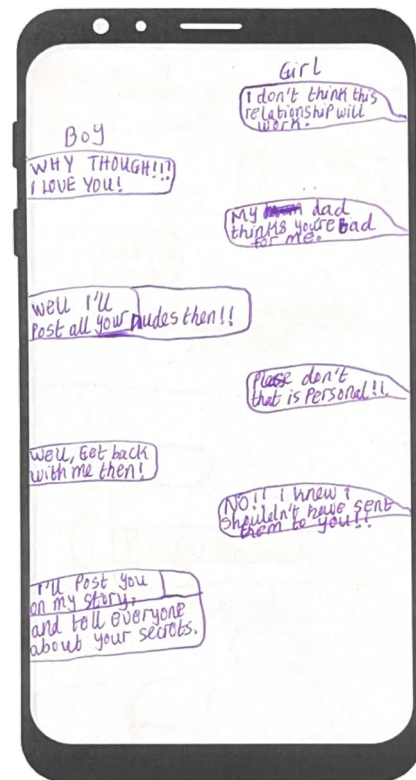 Girl
I don't think this
relationship will
work.
Boy
WHY THOUGH!!!
I LOVE YOU!
My dad
thinks you're bad
for me.
well I'll
Post all your nudes then!!
Please don't
that is Personal!!
Well, Get back
with me then!
NO!! I knew i
shouldn't have sent
them to you!!
I'll Post you
on my story,
and tell everyone
about your secrets.